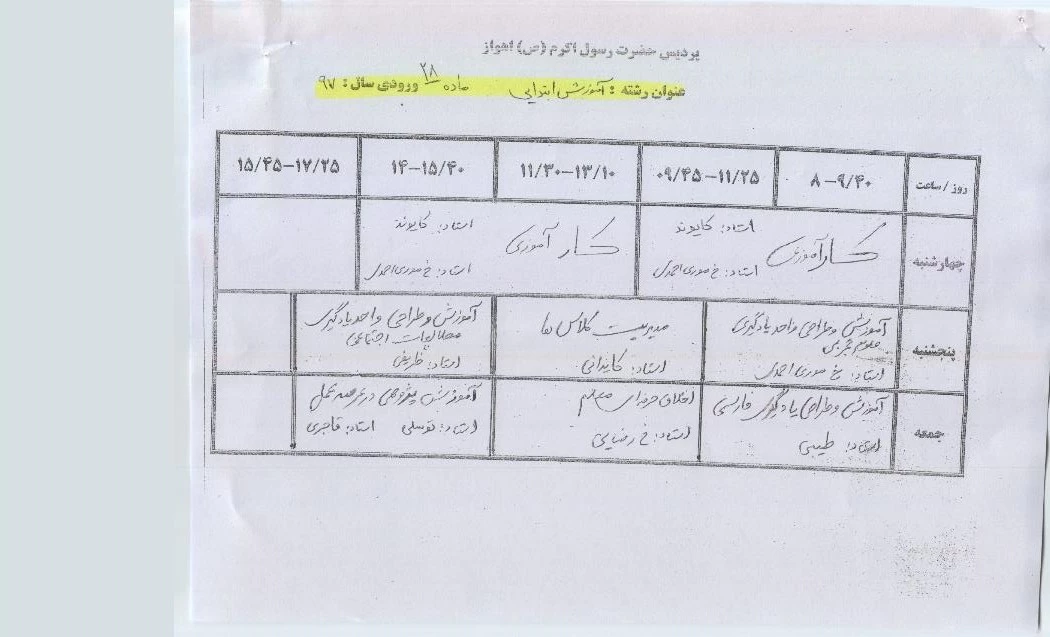 پردیس حضرت رسول اکرم (ص) اهواز
عنوان رشته : آموزش ابتدایی ماده ۲۸ ورودی سال : ۹۷
روز / ساعت ۸-۹/۴۰ ۰۹/۴۵-۱۱/۲۵ ۱۱/۳۰-۱۳/۱۰ ۱۴-۱۵/۴۰ ۱۵/۴۵-۱۷/۲۵
چهارشنبه
کارآموزی استاد: کایوند
استاد: خ موری احمدی
کارآموزی استاد: کایوند
استاد: خ موری احمدی
پنجشنبه
آموزش و طراحی واحد یادگیری
علوم تجربی
استاد: خ موری احمدی
مدیریت کلاس ها
استاد: کایدانی
آموزش و طراحی واحد یادگیری
مطالعات اجتماعی
استاد: ظریفی
جمعه
آموزش و طراحی یادگیری فارسی
استاد: طیبی
اخلاق حرفه ای معلم
استاد: خ رضایی
آموزش پژوهی در عرصه عمل
استاد: توسلی استاد: قاجری